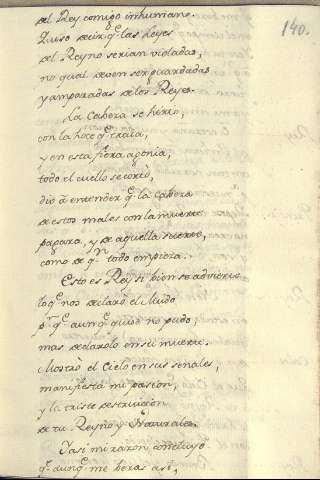 140.
del Rey comigo inhumano.
Quiso decir q.e las Leyes
del Reyno serian violadas,
no qual deven ser guardadas
y amparadas de los Reyes.
La Cabeza se hirio,
con la hoce q.e traìa,
y en esta fiera agonia,
todo el cuello se cortò,
diò à entender q.e la cabeza
de estos males con la muerte
pagara, y de aquella suerte,
como de q.n todo empieza.
Esto es Rey si bien se advierte
lo q.e nos declarò el Mudo
p.r q.e aunq.e quiso no pudo,
mas declaròlo en su muerte.
Mostrò el Cielo en sus señales,
manifiesta mi pasion,
y la triste destruicion
de tu Reyno y Naturales.
Y asi mi razon concluyo
q.e aunq.e me veras asi,